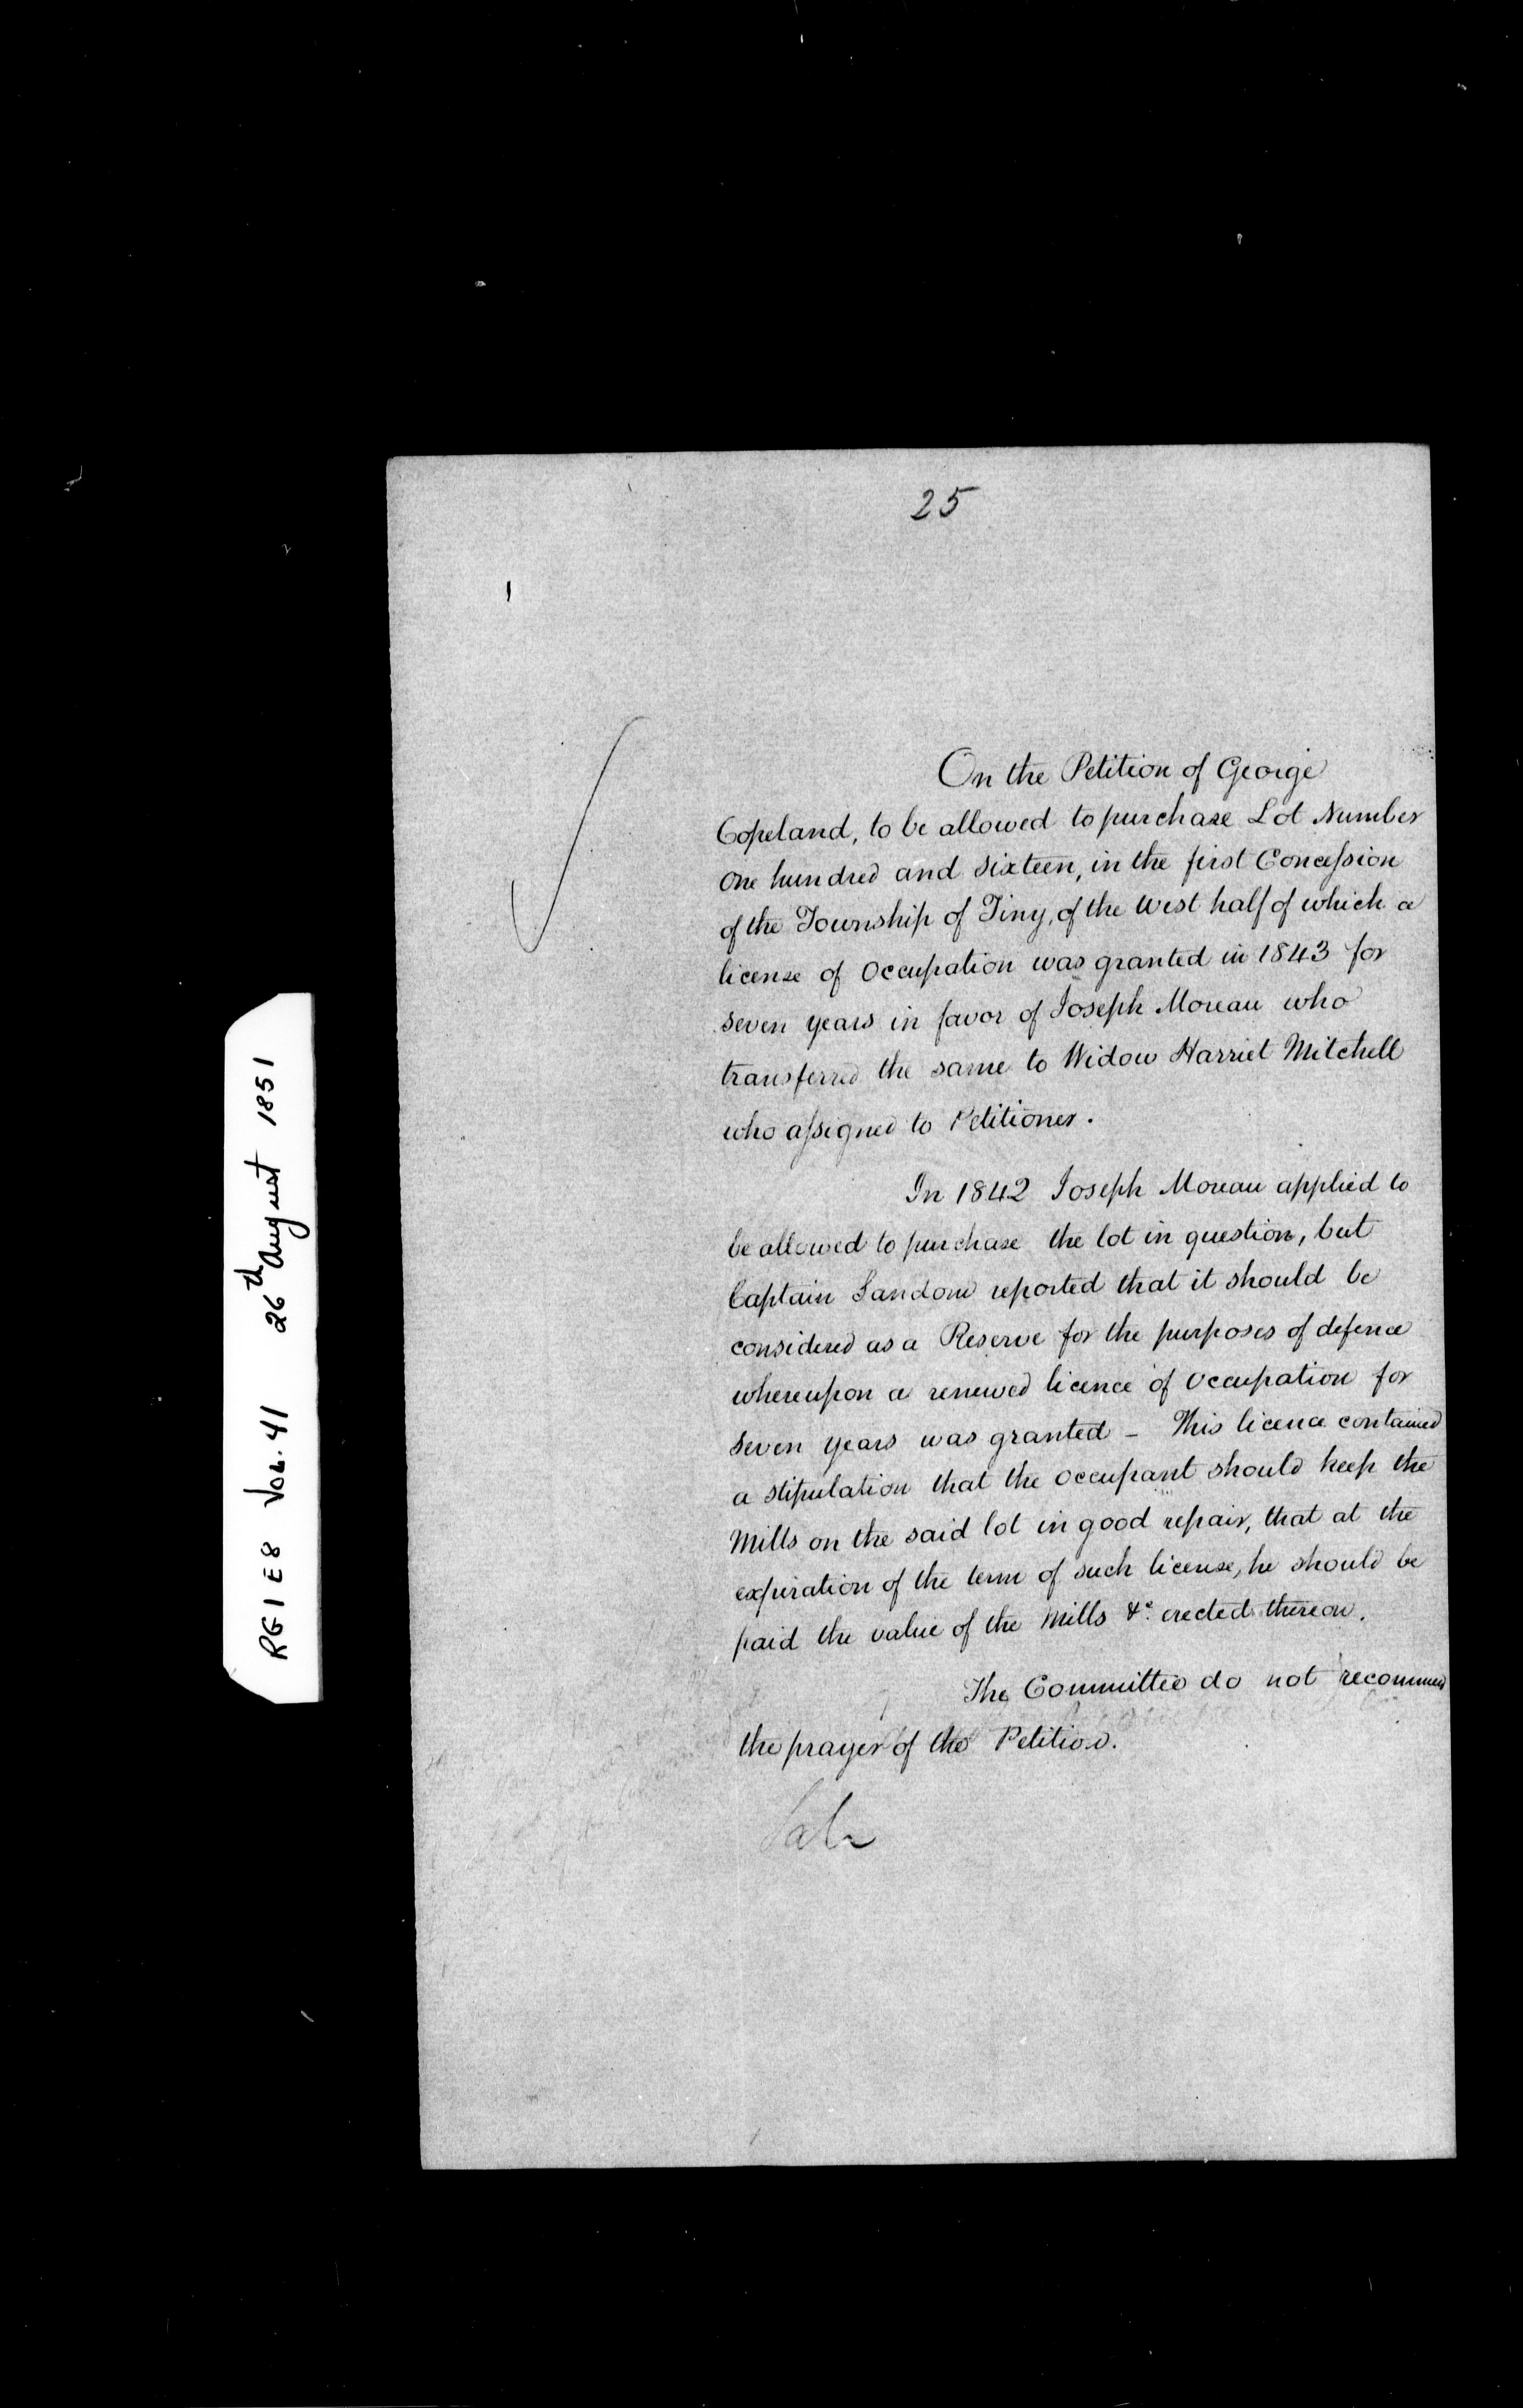 25
On the Petition of George
Copeland, to be allowed to purchase Lot Number
One hundred and sixteen, in the first Concession
of the Township of Tiny, of the West half of which a
license of Occupation was granted in 1843 for
seven years in favor of Joseph Moreau who
transferred the same to Widow Harriet Mitchell
who assigned to Petitioner.
In 1842 Joseph Moreau applied to
be allowed to purchase the lot in question, but
Captain Sandom reported that it should be
considered as a Reserve for the purposes of defence
whereupon a renewed licence of Occupation for
seven years was granted - This licence contained
a stipulation that the Occupant should keep the
Mills on the said lot in good repair, that at the
expiration of the term of such license, he should be
paid the value of the Mills &c. erected thereon.
The Committee do not recommend
the prayer of the Petition.
RG1 E8 Vol. 41 26th August 1851